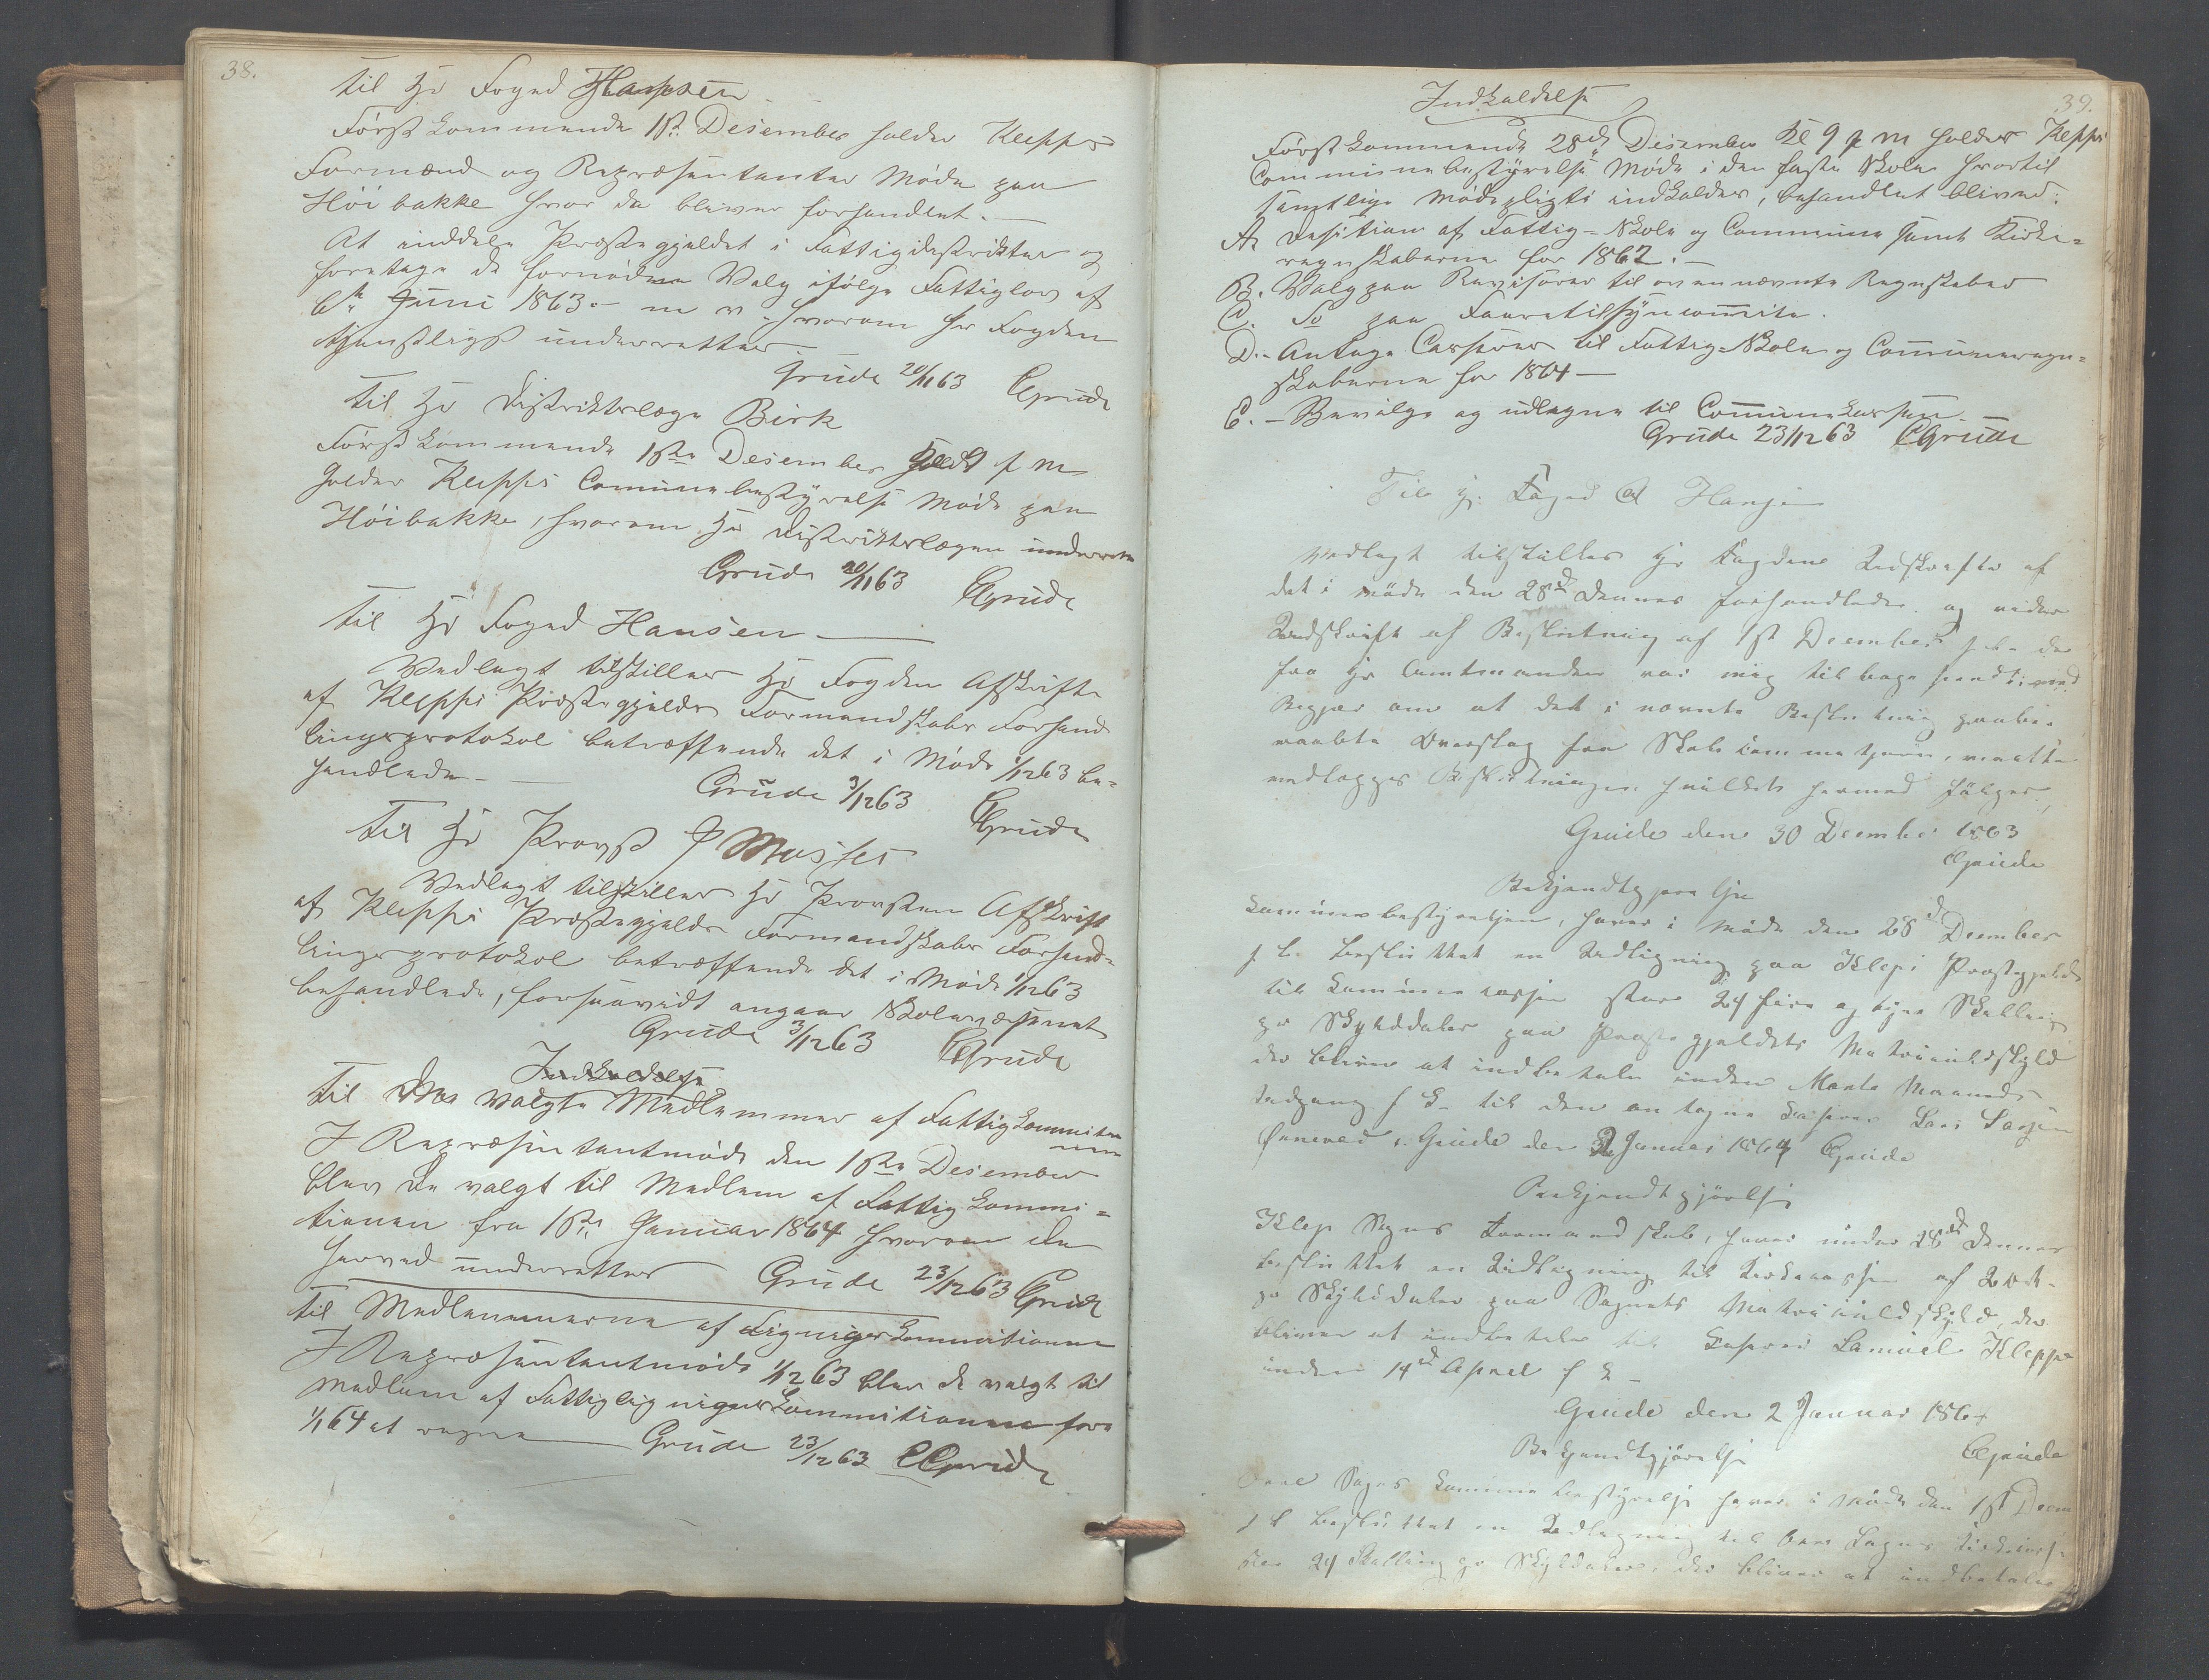 38.
Til Hr Foged Hansen
Førstkommende 1ste Desember holder Klepps
Formænd og Repræsentanter Møde paa
Höibakke hvor da bliver forhandlet.
At inddele Præstegjeldet i Fattigdistrikter og
foretage de fornødne Valg ifølge Fattiglov af
6te Juni 1863.- m v. hvorom Hr Fogden
tjenstligst underrettes
Grude 20/11 63 CGrude
Til Hr Distriktslæge Birk
Førstkommende 1ste Desember f m
holder Klepps Comunebestyrelse Møde paa
Höibakke, hvorom Hr Distriktslægen underrettes
Grude 20/11 63 CGrude
Til Hr Foged Hansen
Vedlagt tilstilles Hr Fogden Afskrift
af Klepps Præstegjelds Formandskabs Forhand
lingsprotokol betræffende det i Møde 1/12 63 be=
handlede-
Grude 3/12 63 CGrude
Til Hr Provst
Vedlagt tilstilles Hr Provsten Afskrift
af Klepps Præstegjelds Formandskabs Forhand=
lingsprotokol betræffende det i Møde 1/12 63
behandlede, forsaavidt angaar Skolevæsenet
Grude 3/12 63 CGrude
Indkaldelse
Til de valgte Medlemmer af Fattigkommitionen
I Repræsentantmøde den 1ste Desember
blev De valgt til Medlem af Fattigkommi=
tionen fra 1ste Januar 1864 hvorom De
herved underrettes Grude 23/12 63 CGrude
Til Medlemmerne af Ligningskommitionen
I Repræsentantmøde 1/12 63 blev de valgt til
Medlem af Fattiglignigskommitionen fra
1/1 64 at regne Grude 23/12 63 CGrude
39.
Indkaldelse
Førstkommende 28de Desember Kl 9 f m holder Klepps
Communebestyrelse Møde i den faste Skole hvortil
samtlige Mødepligti indkaldes, behandlet blive:
A. Desition af Fattig=Skole og Commune samt Kirke=
regnskaberne for 1862.-
B. Valg paa Revisorer til ovennævnte Regnskaber
C. Do paa Faaretilsyncommite.
D.- Antage Casserer til Fattig=Skole og Communeregn=
skaberne for 1864-
E.- Bevilge og udlegne til Communekassen
Grude 23/12 63 CGrude
Til Hr. Foged Hansen
Vedlagt tilstilles Hr Fogden Udskrifte af
det i møde den 28de Dennes forhandlede og videre
Udskrift af Beslutning af 1st December der
fra Hr Amtmanden var mig tilbage sendt med
Begjær om at det i nævnte Beslutning paabe-
raabte Overslag fra Skolekommitjeen, maatte
vedlægges Beslutningen hvilket hermed følger,
Grude den 30 December 1863
CGrude
Bekjendtgjørelse
Kommunebestyrelsen, haver i Møde den 28de December
f A. besluttet en Udligning paa Klepi Præstegjeld
til Kommunekassen stor 24 fire og tyve Skilling
pr Skylddaler paa Præstegjeldets Matriculskyld
der bliver at indbetale inden Marts Maaneds
Udgang til den antagne Kasserer Lars Larsen
Grude den 2 Januar 1864 CGrude
Bekjendtgjørelse
Klep Sogns Formandskab, haver under 28de Dennes
besluttet en Udligning til Kirkekassen af
pr Skylddaler paa Sognets Matriculskyld, der
bliver at indbetale til Kasserer Samuel Kleppe
inden 14de April
Grude den 2 Januar 1864
CGrude
Bekjendtgjørelse
Sogns Kommunebestyrelse haver i Møde den 1st Decem
besluttet en Udligning til Sogns Kirkekasse
24 Skilling pr Skylddaler, der bliver at indbetale